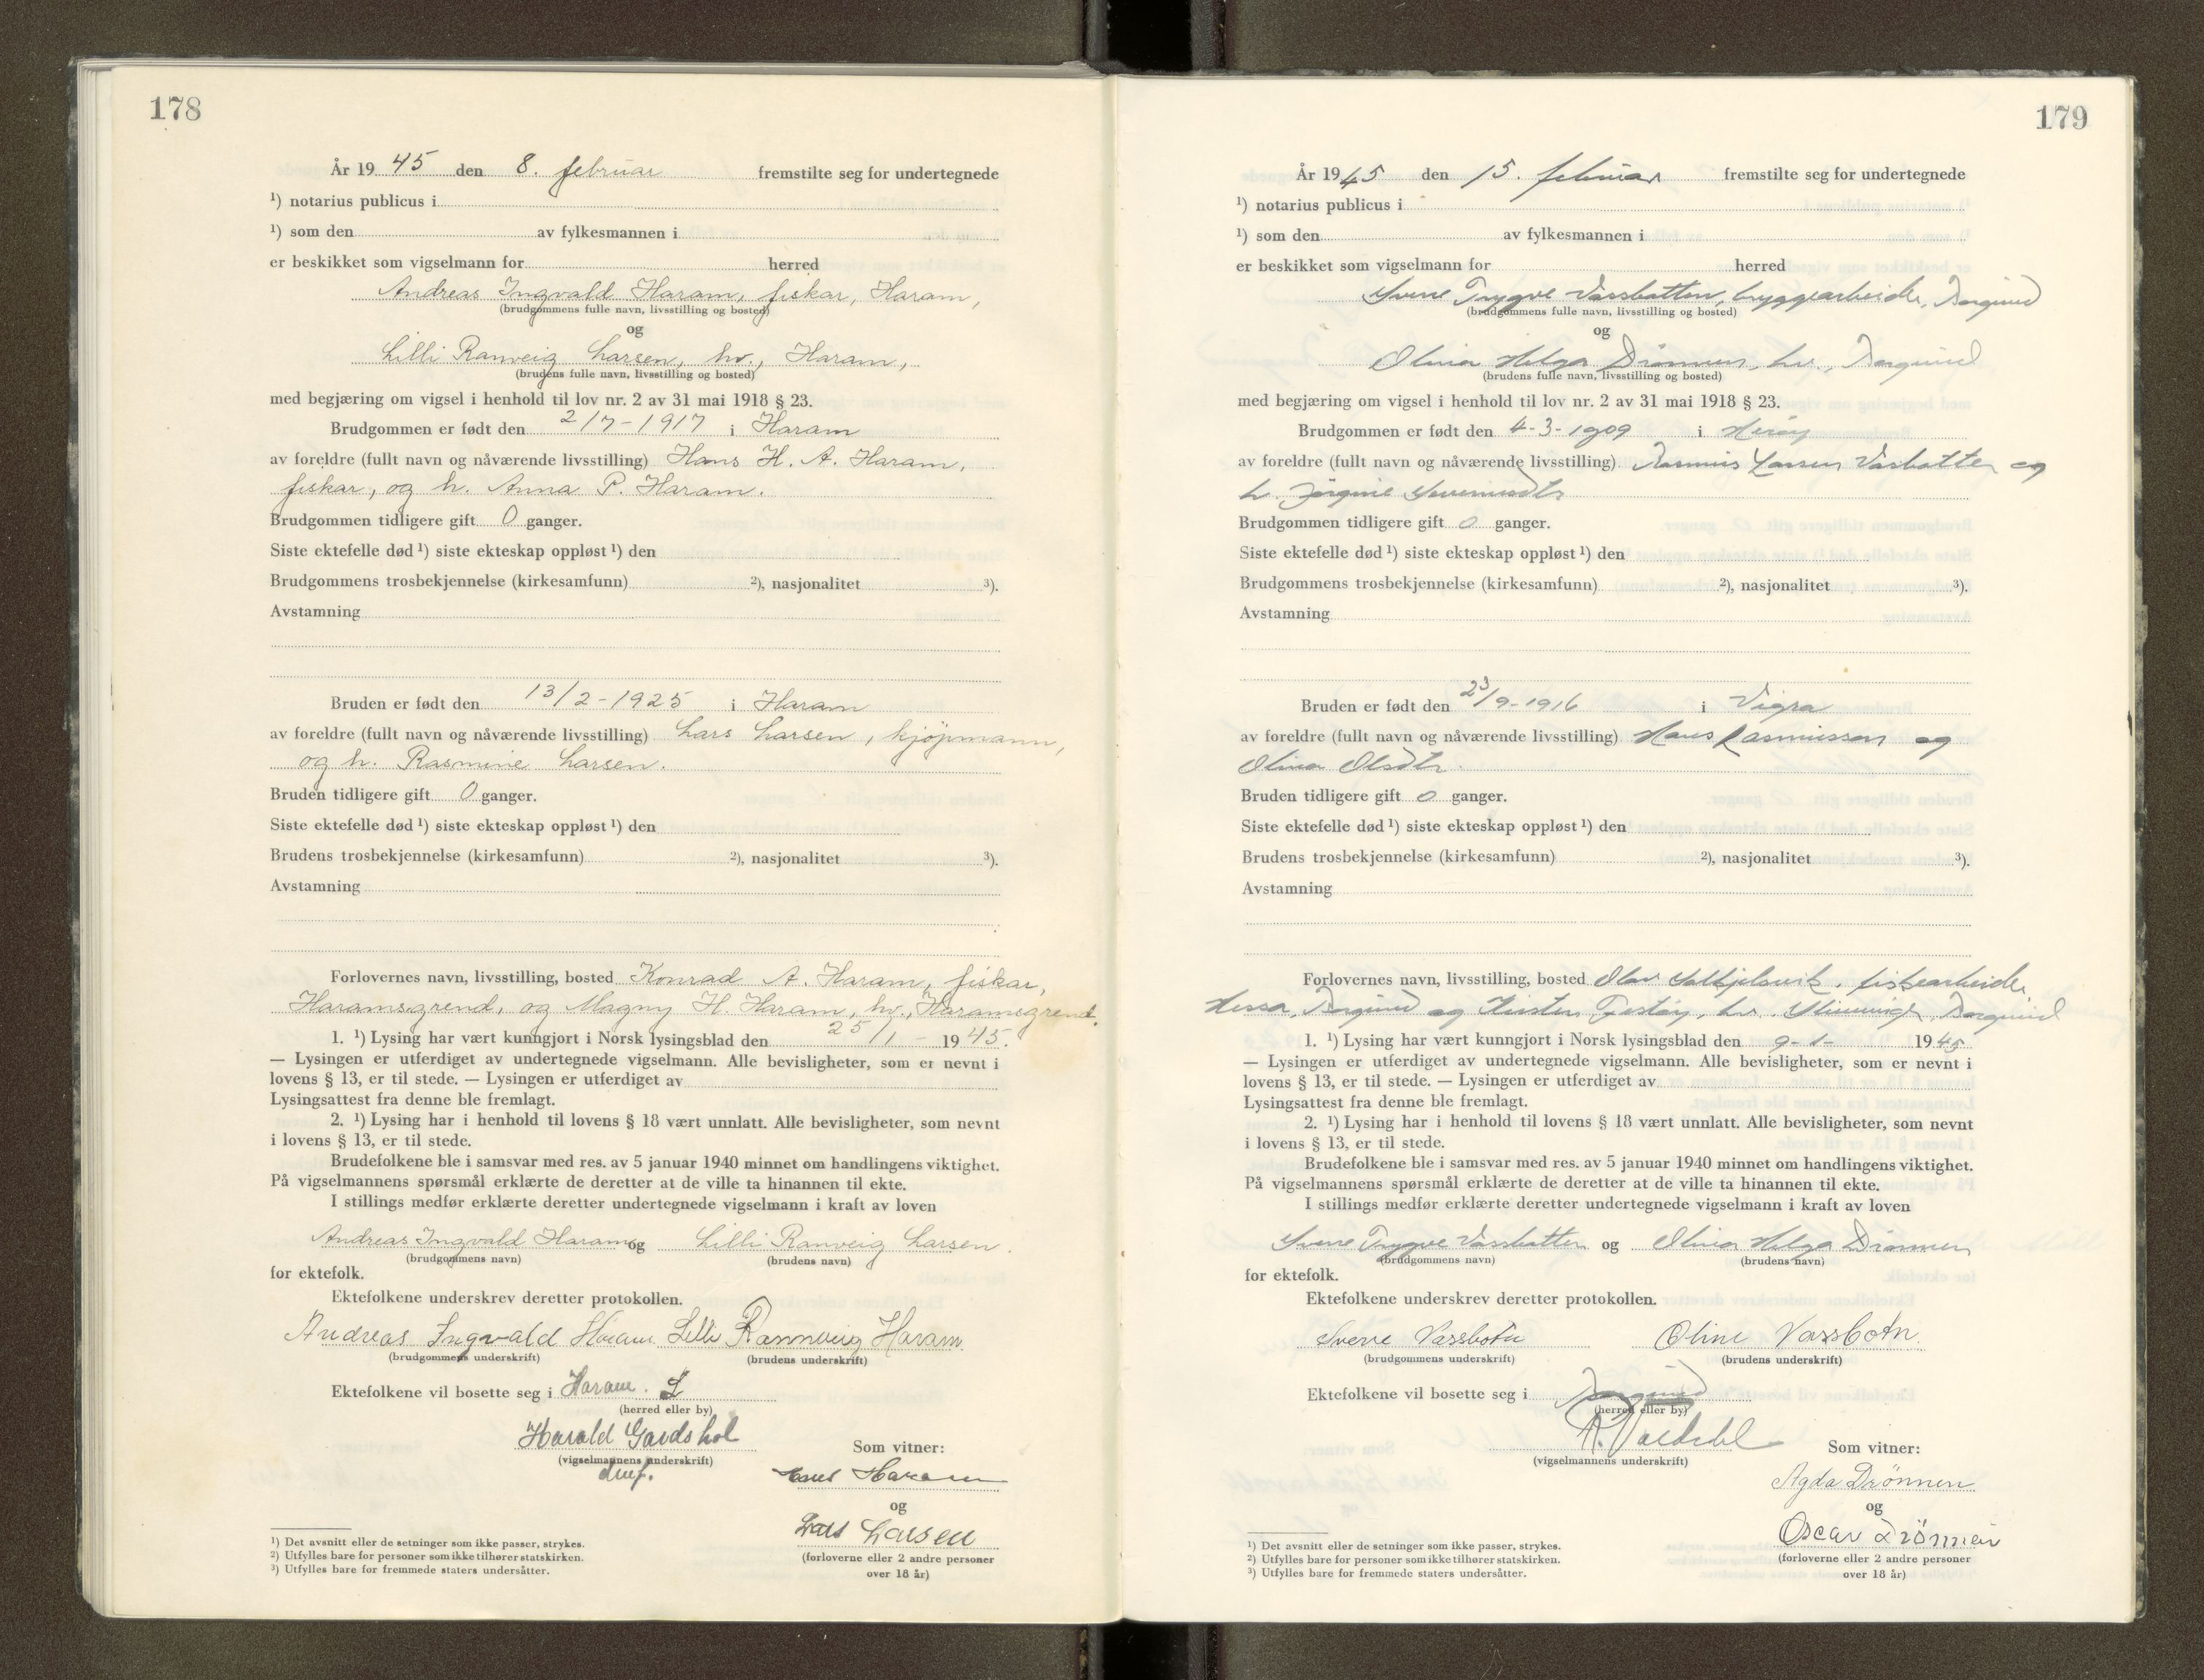 178
År 1945 den 8. februar fremstilte seg for undertegnede
¹) notarius publicus i
¹) som den av fylkesmannen i
er beskikket som vigselmann for herred
Andreas Ingvald Haram, fiskar, Haram,
(brudgommens fulle navn, livsstilling og bosted)
og
Lilli Ranveig Larsen, hv., Haram,
(brudens fulle navn, livsstilling og bosted)
med begjæring om vigsel i henhold til lov nr. 2 av 31 mai 1918 § 23.
Brudgommen er født den 2/7-1917 i Haram
av foreldre (fullt navn og nåværende livsstilling) Hans H. A. Haram,
fiskar, og h. Anna P. Haram.
Brudgommen tidligere gift 0 ganger.
Siste ektefelle død ¹) siste ekteskap oppløst ¹) den
Brudgommens trosbekjennelse (kirkesamfunn) ²), nasjonalitet ³).
Avstamning
Bruden er født den 13/2-1925 i Haram
av foreldre (fullt navn og nåværende livsstilling) Lars Larsen, kjøpmann,
og h. Rasmine Larsen.
Bruden tidligere gift 0 ganger.
Siste ektefelle død ¹) siste ekteskap oppløst ¹) den
Brudens trosbekjennelse (kirkesamfunn) ²), nasjonalitet ³).
Avstamning
Forlovernes navn, livsstilling, bosted Konrad A. Haram, fiskar,
Haramsgrend, og Magny H. Haram, hv., Haramsgrend.
1. ¹) Lysing har vært kunngjort i Norsk lysingsblad den 25/1 - 1945.
— Lysingen er utferdiget av undertegnede vigselmann. Alle bevisligheter, som er nevnt i
lovens § 13, er til stede. — Lysingen er utferdiget av
Lysingsattest fra denne ble fremlagt.
2. ¹) Lysing har i henhold til lovens § 18 vært unnlatt. Alle bevisligheter, som nevnt
i lovens § 13, er til stede.
Brudefolkene ble i samsvar med res. av 5 januar 1940 minnet om handlingens viktighet.
På vigselmannens spørsmål erklærte de deretter at de ville ta hinannen til ekte.
I stillings medfør erklærte deretter undertegnede vigselmann i kraft av loven
Andreas Ingvald Haram og Lilli Ranveig Larsen.
(brudgommens navn) (brudens navn)
for ektefolk.
Ektefolkene underskrev deretter protokollen.
Andreas Ingvald Haram Lilli Rannveig Haram
(brudgommens underskrift) (brudens underskrift)
Ektefolkene vil bosette seg i Haram. L
(herred eller by)
Harald Gardshol
(vigselmannens underskrift)
Som vitner:
Haram
og
Lars Larsen
(forloverne eller 2 andre personer
over 18 år)
¹) Det avsnitt eller de setninger som ikke passer, strykes.
²) Utfylles bare for personer som ikke tilhører statskirken.
³) Utfylles bare for fremmede staters undersåtter.
179
År 1945 den 15. februar fremstilte seg for undertegnede
¹) notarius publicus i
¹) som den av fylkesmannen i
er beskikket som vigselmann for herred
Sverre Trygve Vassbotten, bryggearbeider, Borgund
(brudgommens fulle navn, livsstilling og bosted)
og
Olina Helga Drønnen, hv., Borgund
(brudens fulle navn, livsstilling og bosted)
med begjæring om vigsel i henhold til lov nr. 2 av 31 mai 1918 § 23.
Brudgommen er født den 4-3-1909 i Herøy
av foreldre (fullt navn og nåværende livsstilling) Rasmus Larsen Vasbotten og
h. Jørgine Severinsdtr
Brudgommen tidligere gift 0 ganger.
Siste ektefelle død ¹) siste ekteskap oppløst ¹) den
Brudgommens trosbekjennelse (kirkesamfunn) ²), nasjonalitet ³).
Avstamning
Bruden er født den 23/9-1916 i Vigra
av foreldre (fullt navn og nåværende livsstilling) Hans Rasmussen og
Olina Olsdtr.
Bruden tidligere gift 0 ganger.
Siste ektefelle død ¹) siste ekteskap oppløst ¹) den
Brudens trosbekjennelse (kirkesamfunn) ²), nasjonalitet ³).
Avstamning
Forlovernes navn, livsstilling, bosted Olav fiskearbeider
Hessa, Borgund og Kirsten Festøy, hv. Borgund
1. ¹) Lysing har vært kunngjort i Norsk lysingsblad den 9-1- 1945
— Lysingen er utferdiget av undertegnede vigselmann. Alle bevisligheter, som er nevnt i
lovens § 13, er til stede. — Lysingen er utferdiget av
Lysingsattest fra denne ble fremlagt.
2. ¹) Lysing har i henhold til lovens § 18 vært unnlatt. Alle bevisligheter, som nevnt
i lovens § 13, er til stede.
Brudefolkene ble i samsvar med res. av 5 januar 1940 minnet om handlingens viktighet.
På vigselmannens spørsmål erklærte de deretter at de ville ta hinannen til ekte.
I stillings medfør erklærte deretter undertegnede vigselmann i kraft av loven
Sverre Trygve Vassbotten og Olina Helga Drønnen
(brudgommens navn) (brudens navn)
for ektefolk.
Ektefolkene underskrev deretter protokollen.
Sverre Vassbotn Oline Vassbotn.
(brudgommens underskrift) (brudens underskrift)
Ektefolkene vil bosette seg i Borgund
(herred eller by)
(vigselmannens underskrift)
Som vitner:
Agda Drönnen
og
Oscar Drönnen
(forloverne eller 2 andre personer
over 18 år)
¹) Det avsnitt eller de setninger som ikke passer, strykes.
²) Utfylles bare for personer som ikke tilhører statskirken.
³) Utfylles bare for fremmede staters undersåtter.